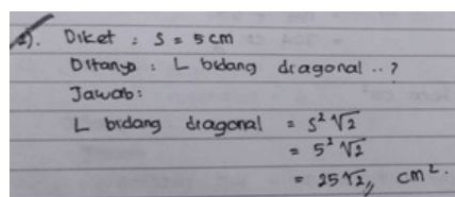 2). Diket : S = 5 cm
Ditanya : L bidang diagonal ..?
Jawab :
L bidang diagonal = S²√2
= 5²√2
= 25√2,, cm².